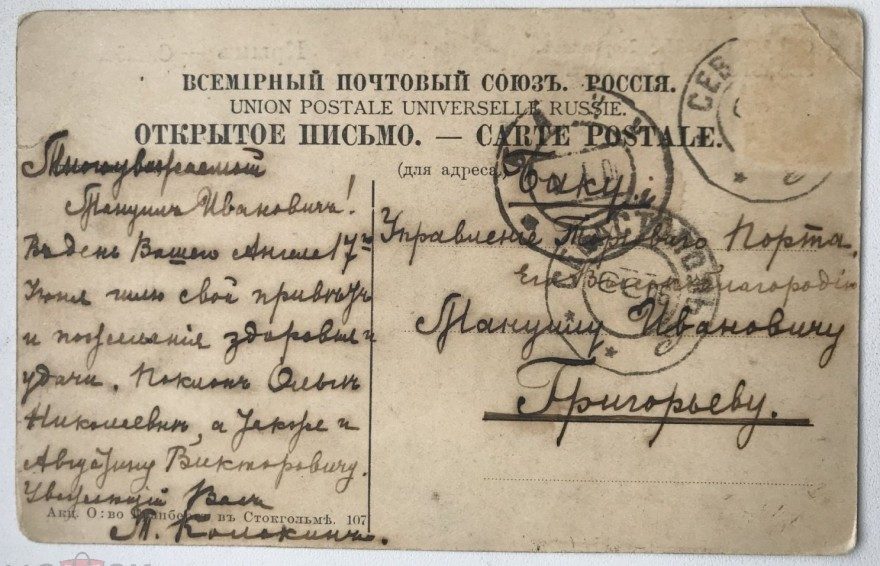 ВСЕМІРНЫЙ ПОЧТОВЫЙ СОЮЗЪ. РОССІЯ.
UNION POSTALE UNIVERSELLE RUSSIE.
ОТКРЫТОЕ ПИСЬМО. — CARTE POSTALE.
(для адреса.)
Многоуважаемый
Мануилъ Ивановичъ!
Въ день Вашего Ангела 17го
Іюня шлю свой привѣтъ
и пожеланія здоровья и
удачи. Поклонъ Ольгѣ
Николаевнѣ, а также и
Августину Викторовичу.
Уважающій Васъ
Баку
Управленіе Торговаго Порта.
Его Высокоблагородію
Мануилу Ивановичу
Григорьеву.
СЕВ
СЕВАСТОПОЛЬ
Акц. О:во Гранбергъ въ Стокгольмѣ. 107